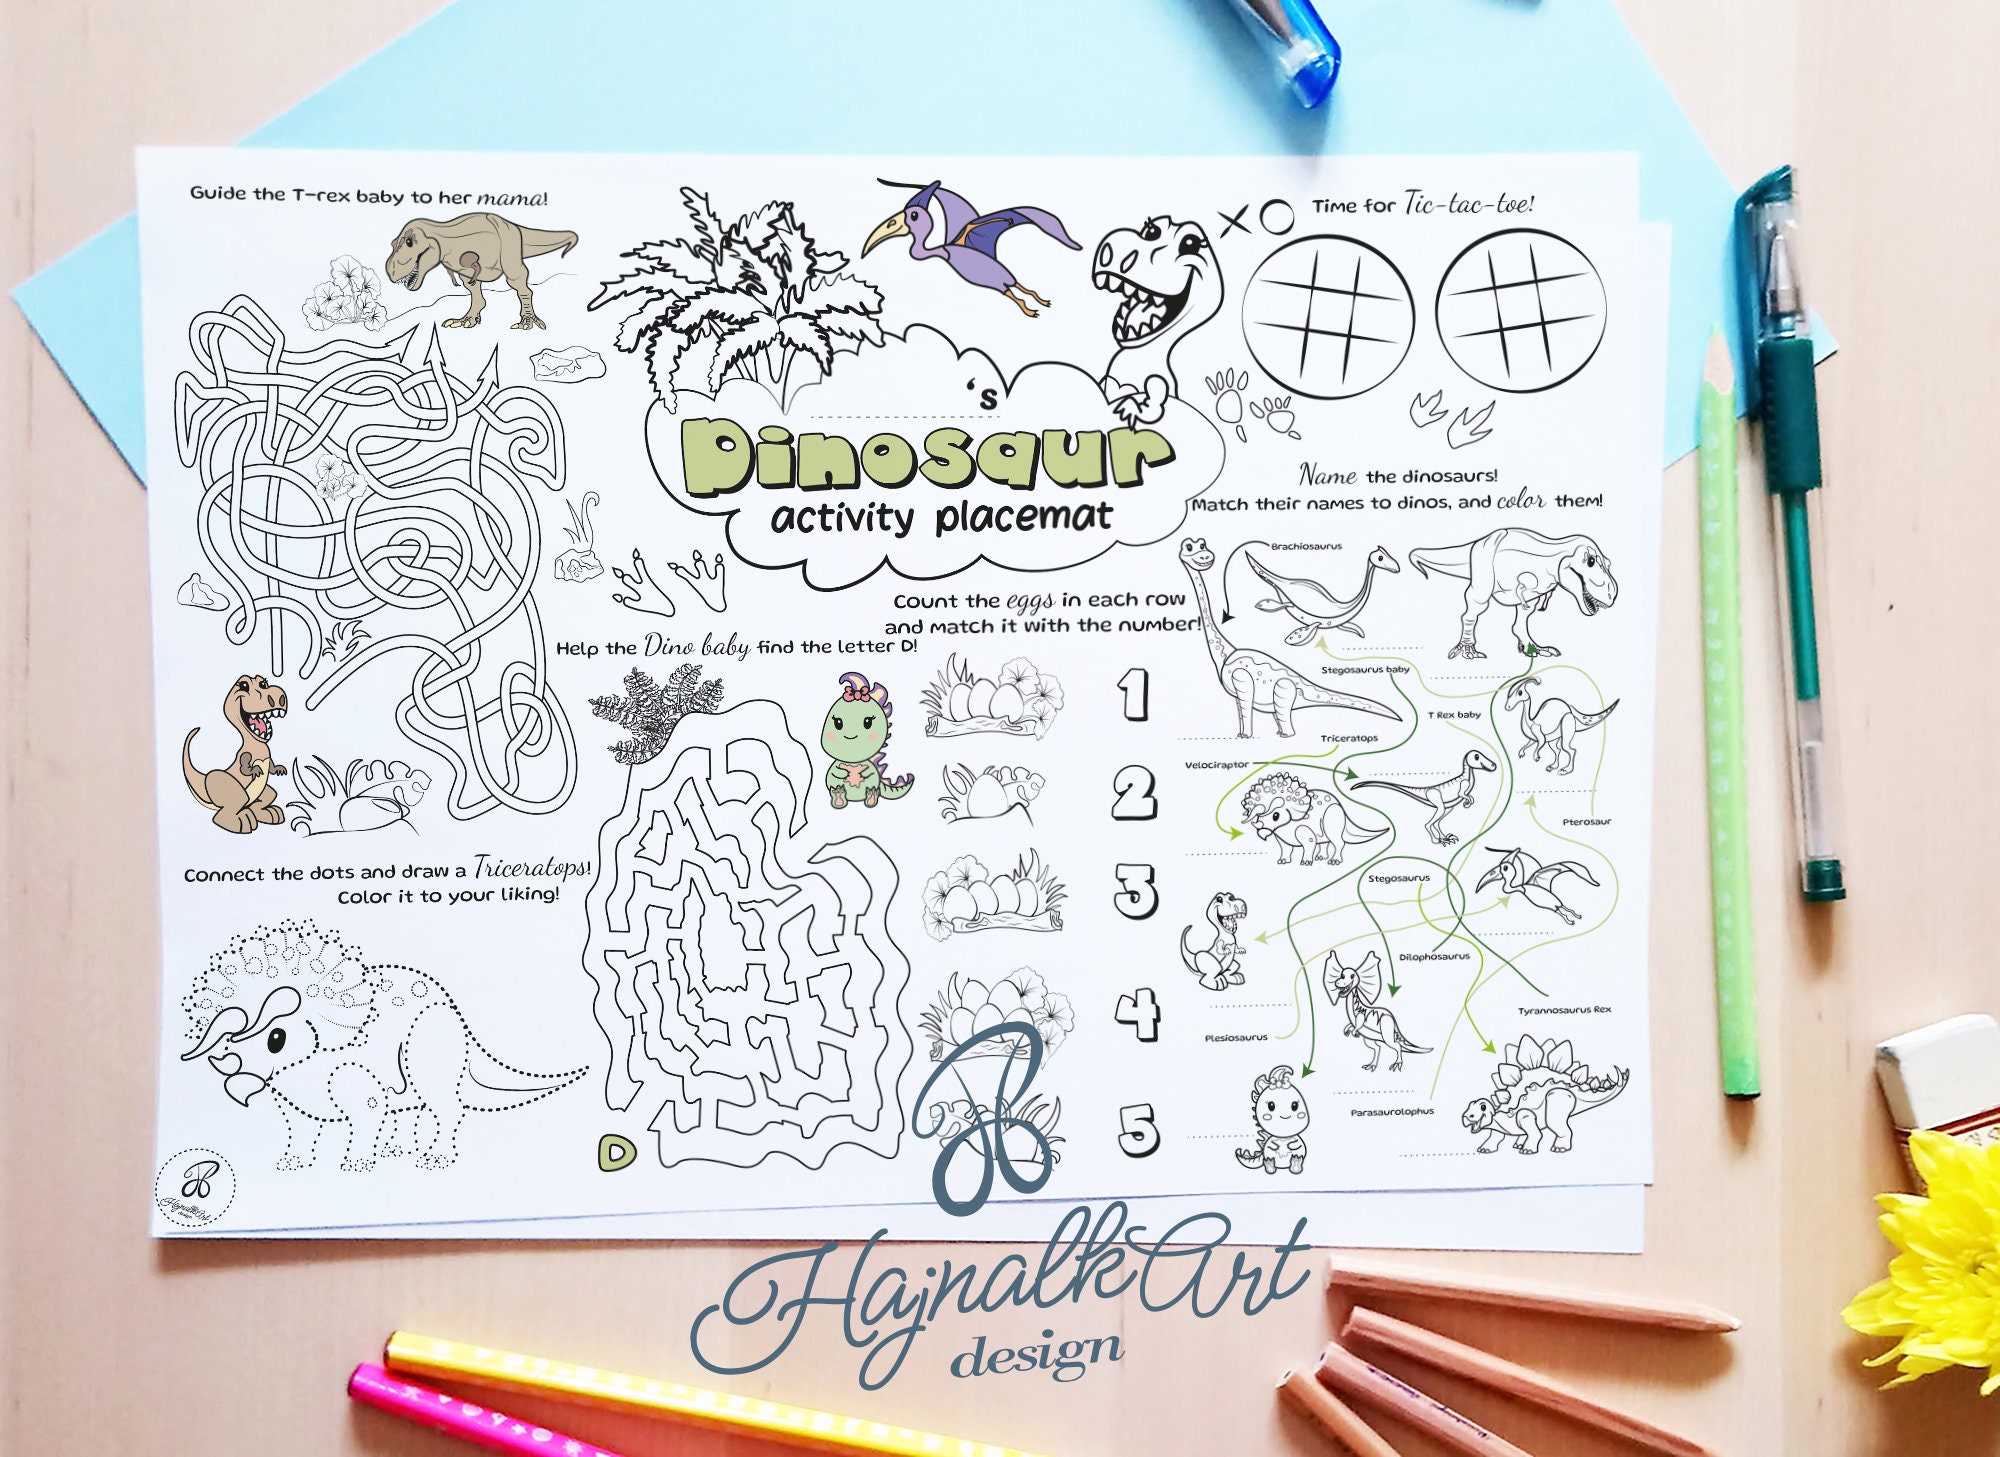 Guide the T-rex baby to her mama!
Time for Tic-tac-toe!
's
Dinosaur
activity placemat
Name the dinosaurs!
Match their names to dinos, and color them!
Brachiosaurus
Count the eggs in each row
and match it with the number!
Help the Dino baby find the letter D!
Stegosaurus baby
T Rex baby
Triceratops
Velociraptor
Pterosaur
Stegosaurus
Dilophosaurus
Tyrannosaurus Rex
Plesiosaurus
Parasaurolophus
1
2
3
4
5
Connect the dots and draw a Triceratops!
Color it to your liking!
D
HajnalkArt
design
HajnalkArt
design